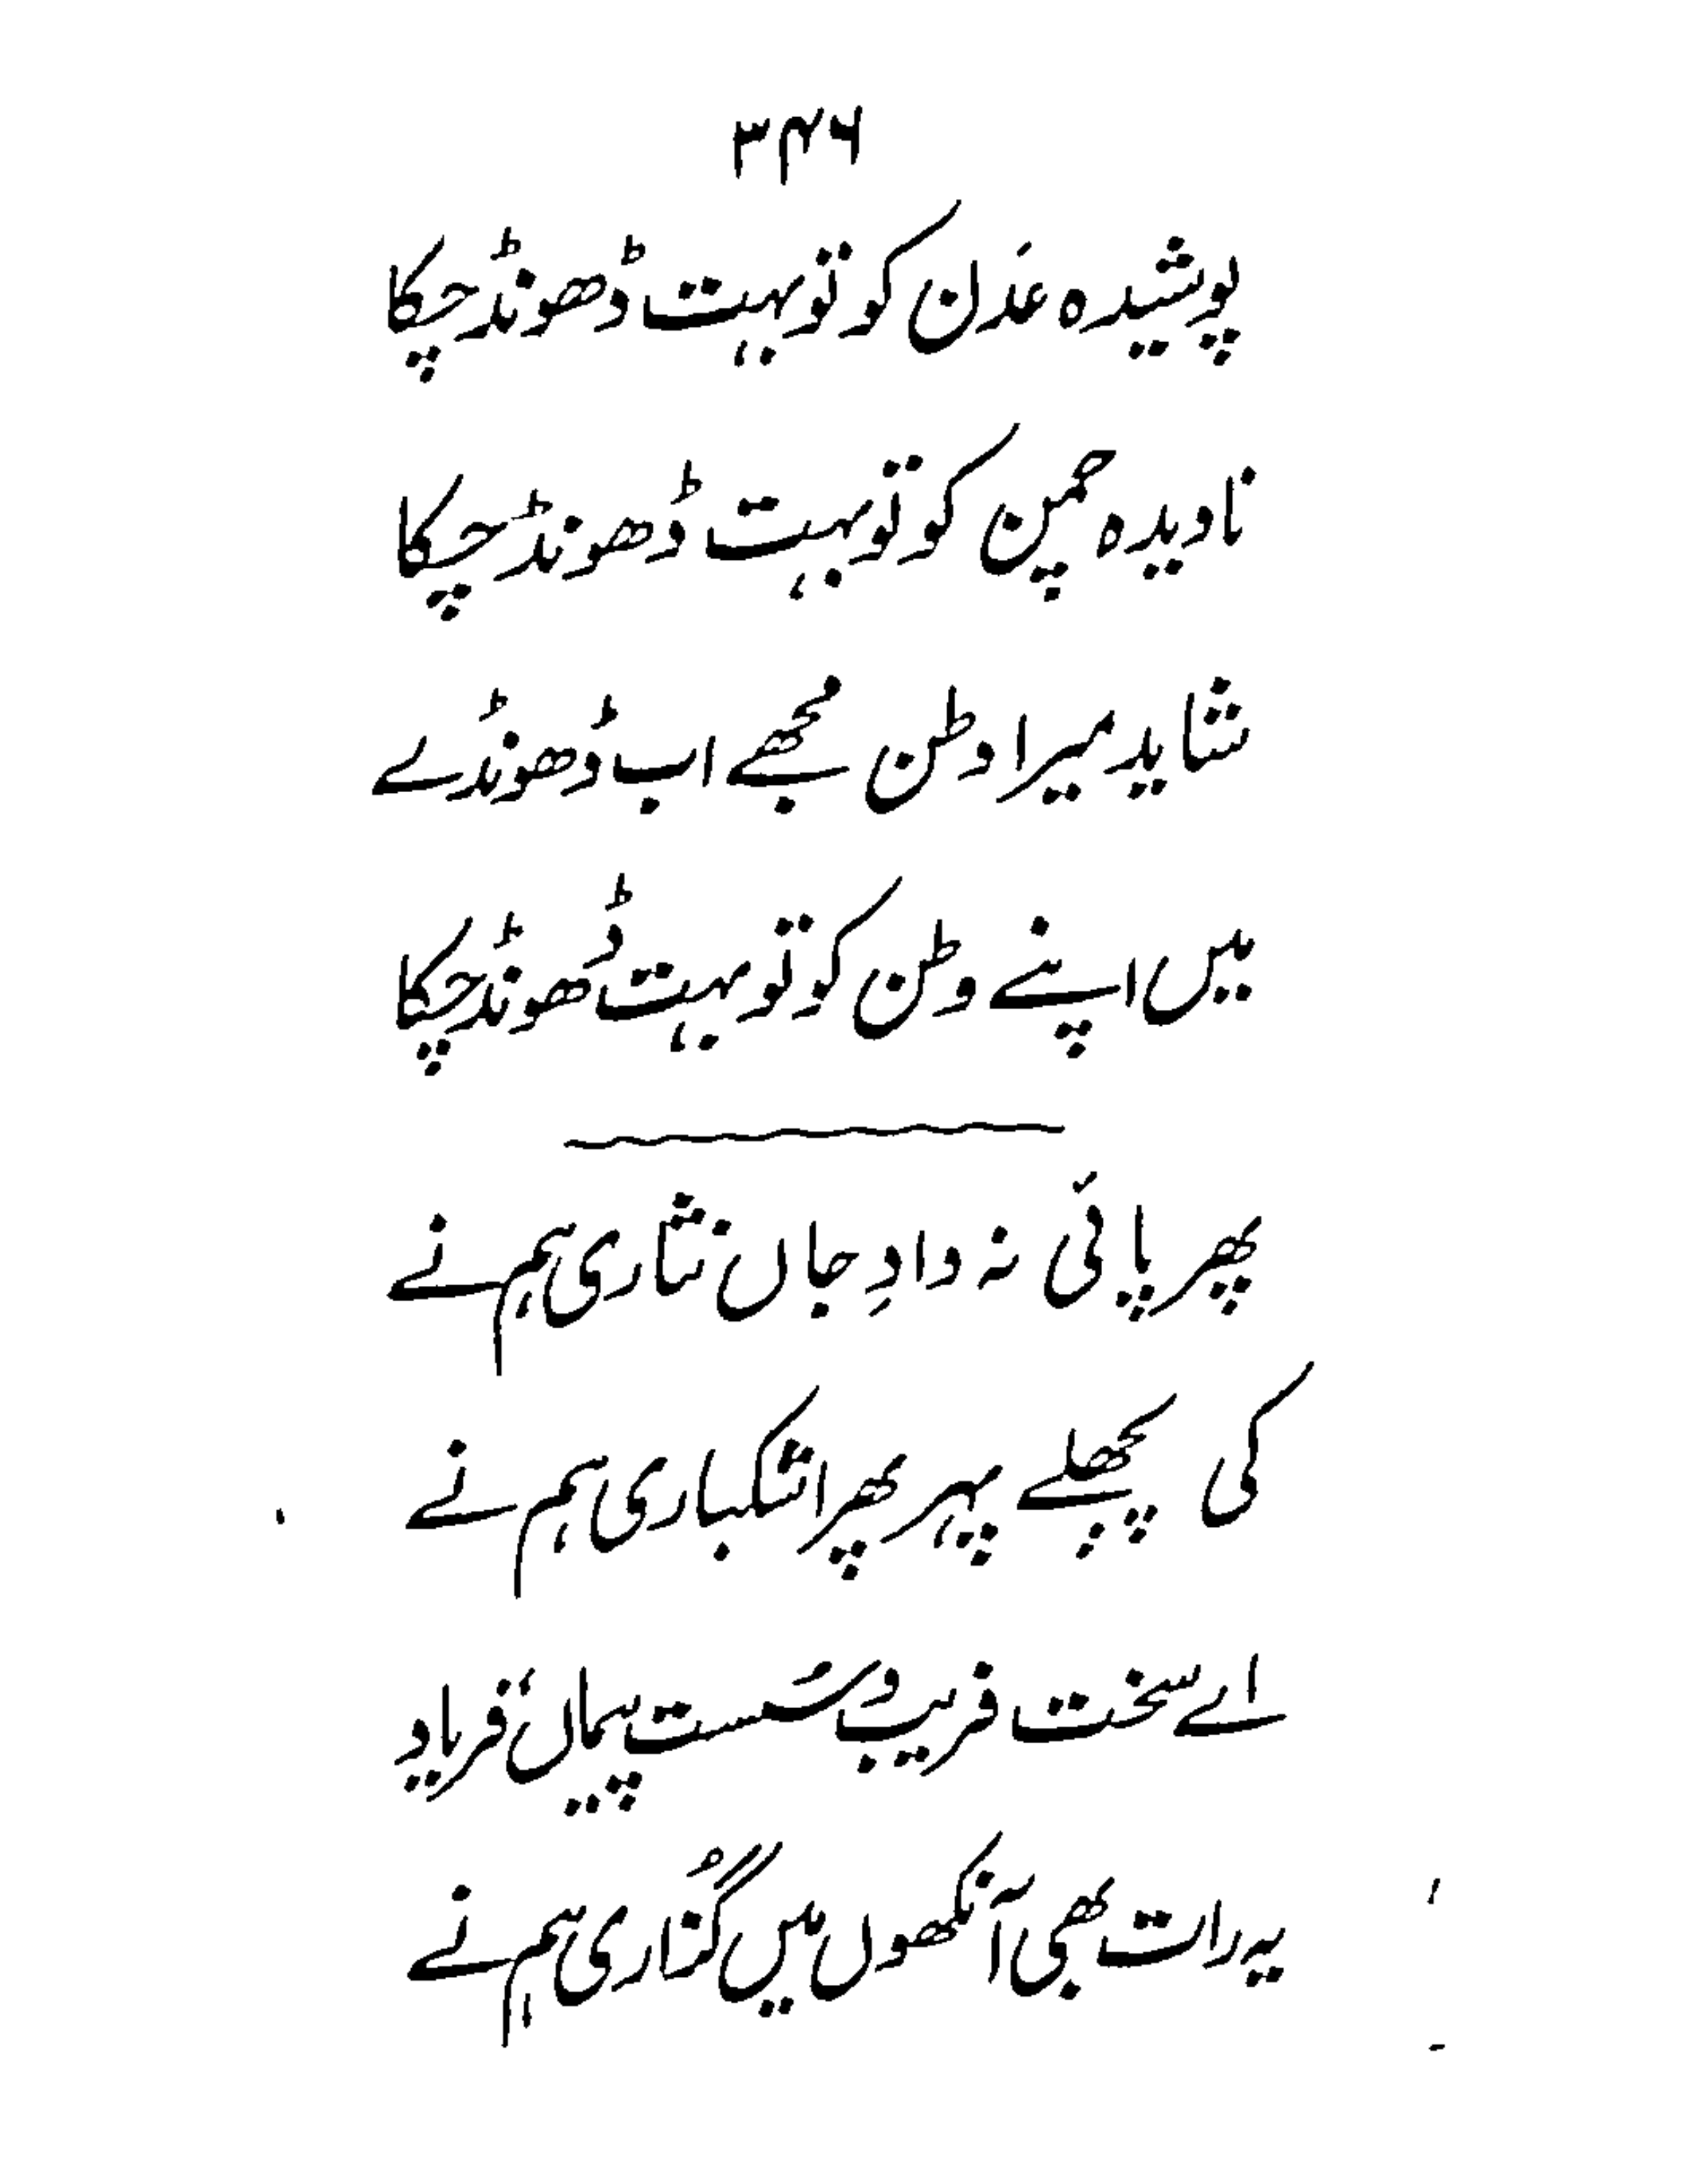 ۳۴۶
پوشیدہ عَدَن کو تو بہت ڈھونڈ چکا
نادیدہ چمن کو تو بہت ڈھونڈ چکا
شاید میرا وطن مجھے اب ڈھونڈے
میں اپنے وطن کو تو بہت ڈھونڈ چکا
پھر پائی نہ دادِ جاں نثاری ہم نے
کی پچھلے پہر پھر اشکباری ہم نے
اے سخت فریب و سُست پیماں فریاد
یہ رات بھی آنکھوں میں گُزاری ہم نے